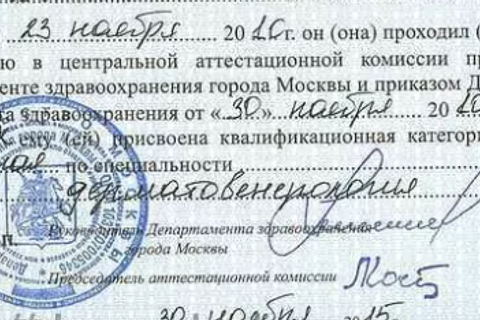 23 ноября 2010 г. он (она) проходил (
ю в центральной аттестационной комиссии пр
енте здравоохранения города Москвы и приказом Д
а здравоохранения от « 30 » ноября 2010
ему (ей) присвоена квалификационная категори
ная по специальности
дерматовенерология
Руководитель Департамента здравоохранения
города Москвы
Председатель аттестационной комиссии
30 ноября 2015 г.